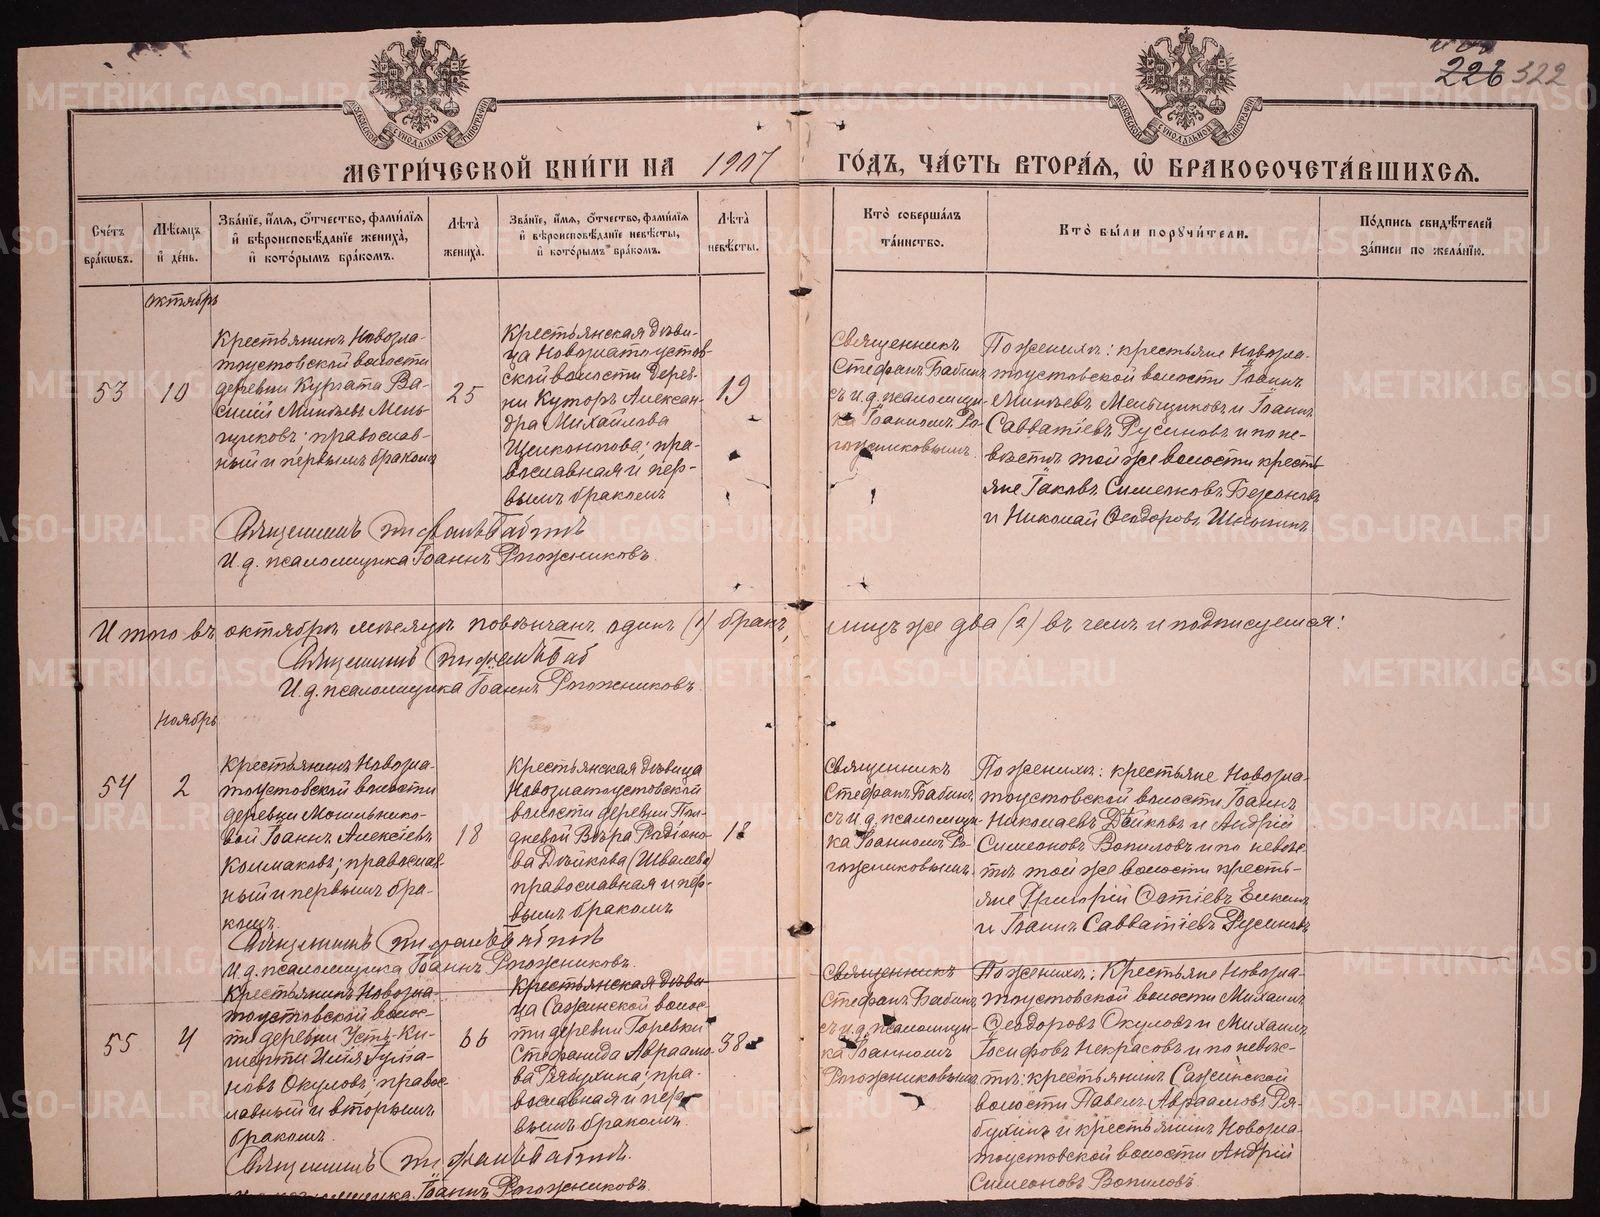 226 322
МЕТРИ́ЧЕСКОЙ КНИ́ГИ НА 1907 ГО́ДЪ, ЧА́СТЬ ВТОРА́Я, Ѽ БРАКОСОЧЕТА́ВШИХСЯ.
Сче́тъ бра́кѡвъ.
Мѣ́сяцъ и҆ де́нь.
Зва́нїе, и҆́мя, ѻ҆́тчество, фами́лїя и҆ вѣроисповѣ́данїе жениха̀, и҆ кото́рымъ бра́комъ.
Лѣта̀ жениха̀.
Зва́нїе, и҆́мя, ѻ҆́тчество, фами́лїя и҆ вѣроисповѣ́данїе невѣ́сты, и҆ кото́рымъ бра́комъ.
Лѣта̀ невѣ́сты.
Кто̀ соверша́лъ та́инство.
Кто̀ бы́ли порꙋчи́тели.
По́дпись свидѣ́телей за́писи по жела́нїю.
октябрь
53
10
Крестьянинъ Новозла-
тоустовской волости
деревни Кургата Ва-
силій Минѣевъ Мень-
щиковъ; православ-
ный и первымъ бракомъ
25
Крестьянская дѣви-
ца Новозлатоустов-
ской волости дерев-
ни Куторъ Алексан-
дра Михайлова
Щелконогова; пра-
вославная и пер-
вымъ бракомъ
19
Священникъ
Стефанъ Бабинъ
съ и. д. псаломщи-
ка Іоанномъ Ро-
гожниковымъ.
По женихѣ: крестьяне Новозла-
тоустовской волости Іоаннъ
Минѣевъ Меньщиковъ и Іоаннъ
Савватіевъ Русиновъ и по не-
вѣстѣ той же волости кресть-
яне Іаковъ Симеоновъ
и Николай Ѳеодоровъ
Священникъ Стефанъ Бабинъ
И. д. псаломщика Іоаннъ Рогожниковъ.
Итого въ октябрѣ мѣсяцѣ повѣнчанъ одинъ (1) бракъ, лицъ же два (2) въ чемъ и подписуемся:
Священникъ Стефанъ Баб
И. д. псаломщика Іоаннъ Рогожниковъ.
ноябрь
54
2
Крестьянинъ Новозла-
тоустовской волости
деревни Мошильнико-
вой Іоаннъ Алексіевъ
Колмаковъ; православ-
ный и первымъ бра-
комъ.
18
Крестьянская дѣвица
Новозлатоустовской
волости деревни Пол-
дневой Вѣра Родіоно-
ва Дѣйкова (Швалева)
православная и пер-
вымъ бракомъ
18
Священникъ
Стефанъ Бабинъ
съ и. д. псаломщи-
ка Іоанномъ Ро-
гожниковымъ.
По женихѣ: крестьяне Новозла-
тоустовской волости Іоаннъ
Николаевъ Дѣйковъ и Андрій
Симеоновъ Вопиловъ и по невѣс-
тѣ той же волости кресть-
яне Григорій
и Іоаннъ Савватіевъ Русиновъ
Священникъ Стефанъ Бабинъ
И. д. псаломщика Іоаннъ Рогожниковъ.
55
4
Крестьянинъ Новозла-
тоустовской волос-
ти деревни Усть-Ки-
шерти Илія
Окуловъ; правос-
лавный и вторымъ
бракомъ.
66
Крестьянская дѣви-
ца Сажинской волос-
ти деревни Горевки
Стефанида Авраамо-
ва Рябухина; пра-
вославная и пер-
вымъ бракомъ.
38
Священникъ
Стефанъ Бабинъ
съ и. д. псаломщи-
ка Іоанномъ
Рогожниковымъ.
По женихѣ: Крестьяне Новозла-
тоустовской волости Михаилъ
Ѳеодоровъ Окуловъ и Михаилъ
Іосифовъ Некрасовъ и по невѣс-
тѣ: крестьянинъ Сажинской
волости Павелъ Авраамовъ Ря-
бухинъ и крестьянинъ Новозла-
тоустовской волости Андрій
Симеоновъ Вопиловъ
Священникъ Стефанъ Бабинъ.
И. д. псаломщика Іоаннъ Рогожниковъ.
METRIKI.GASO-URAL.RU